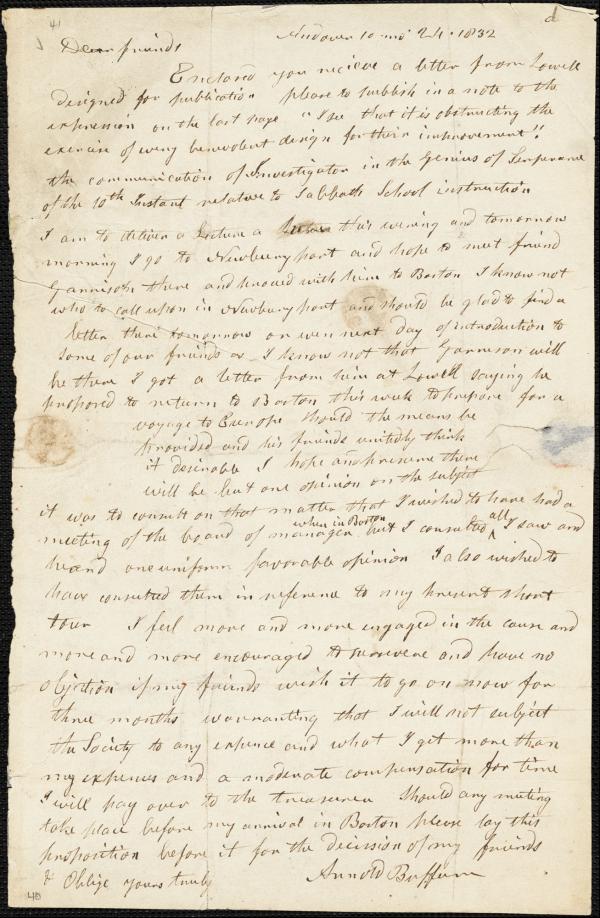 41
d
Andover 10 mo 24. 1832
Dear friends
Enclosd you recieve a letter from Lowell
designed for publication please to publish in a note to the
expression on the last page "I see that it is obstructing the
exercise of every benevolent design for their improvement"!
the communication of Investigator in the Genius of Temperance
of the 10th Instant relative to Sabbath School instruction
I am to deliver a Lecture a here this evening and tomorrow
morning I go to Newburyport and hope to meet friend
Garrison there and proceed with him to Boston I know not
who to call upon in Newburyport and should be glad to find a
letter there tomorrow or even next day of introduction to
some of our friends as I know not that Garrison will
be there I got a letter from him at Lowell saying he
proposed to return to Boston this week to prepare for a
voyage to Europe should the means be
provided and his friends unitedly think
it desirable I hope and presume there
will be but one opinion on the subject
it was to consult on that matter that I wished to have had a
meeting of the board of managers when in Boston but I consulted all I saw and
heard one uniform favorable opinion I also wished to
have consulted them in reference to my present short
tour I feel more and more engaged in the cause and
more and more encouraged to persevere and have no
objection if my friends wish it to go on now for
three months warranting that I will not subject
the Society to any expence and what I get more than
my expenses and a moderate compensation for time
I will pay over to the treasurer Should any meeting
take place before my arrival in Boston please lay this
proposition before it for the decision of my friends
& Oblige yours truly
Arnold Buffum
40